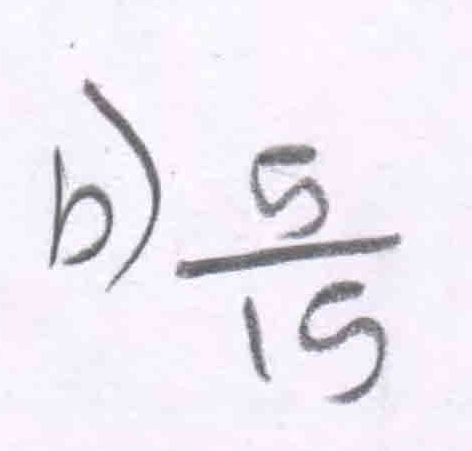 b) 5
15